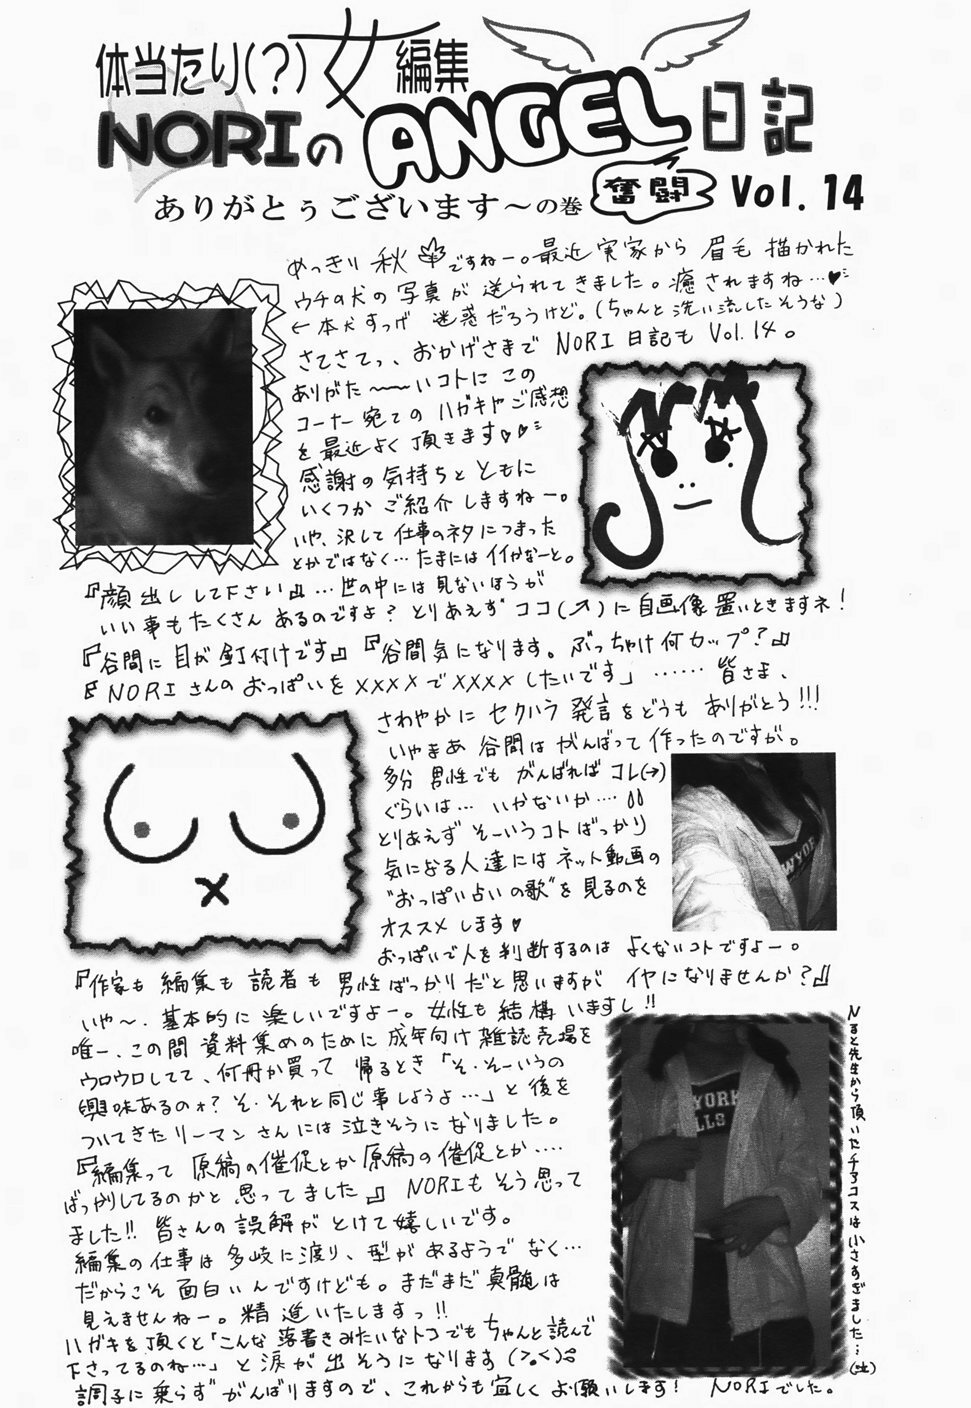 体当たり(?)女編集
NORIのANGEL日記
奮闘
ありがとぅございます～の巻
Vol. 14
めっきり秋ですねー。最近実家から眉毛描かれた
ウチの犬の写真が送られてきました。癒されますね…♥
←本犬すっげ迷惑だろうけど。(ちゃんと洗い流したそうな)
さてさてっ、おかげさまで NORI日記も Vol.14。
ありがた〜〜いコトに この
コーナー宛ての ハガキやご感想
を最近よく頂きます♡♡
感謝の気持ちとともに
いくつかご紹介しますねー。
いや、決して仕事のネタにつまった
とかではなく…たまにはイイかなーと。
『顔出しして下さい』…世の中には見ないほうが
いい事もたくさんあるのですよ?とりあえずココ(↗)に自画像置いときますネ!
『谷間に目が釘付けです』『谷間気になります。ぶっちゃけ何カップ?』
『NORIさんのおっぱいをXXXXでXXXXしたいです」……皆さま、
さわやかにセクハラ発言をどうもありがとう!!!
いやまあ谷間はがんばって作ったのですが。
多分 男性でも がんばれば コレ(→)
ぐらいは… いかないか…
とりあえず そーいうコトばっかり
気になる人達にはネット動画の
"おっぱい占いの歌"を見るのを
オススメします♥
おっぱいで人を判断するのは よくないコトですよー。
『作家も編集も読者も男性ばっかりだと思いますが イヤになりませんか?』
いや〜、基本的に楽しいですよー。女性も結構いますし!!
唯一、この間資料集めのために成年向け雑誌売場を
ウロウロしてて、何冊か買って帰るとき「そ・そーいうの
興味あるのォ?そ・それと同じ事しようよ…」と後を
ついてきたリーマンさんには泣きそうになりました。
『編集って原稿の催促とか原稿の催促とか…
ばっかりしてるのかと思ってました』NORIもそう思って
ました!!皆さんの誤解がとけて嬉しいです。
編集の仕事は多岐に渡り、型があるようでなく…
だからこそ面白いんですけども。まだまだ真髄は
見えませんねー。精進いたしますっ!!
ハガキを頂くと「こんな落書きみたいなトコでもちゃんと読んで
下さってるのね…」と涙が出そうになります(>。<)
調子に乗らずがんばりますので、これからも宜しくお願いします! NORIでした。
NEW YORK
先生から頂いたチアコスは小さすぎました…(泣)
YORK
LLS